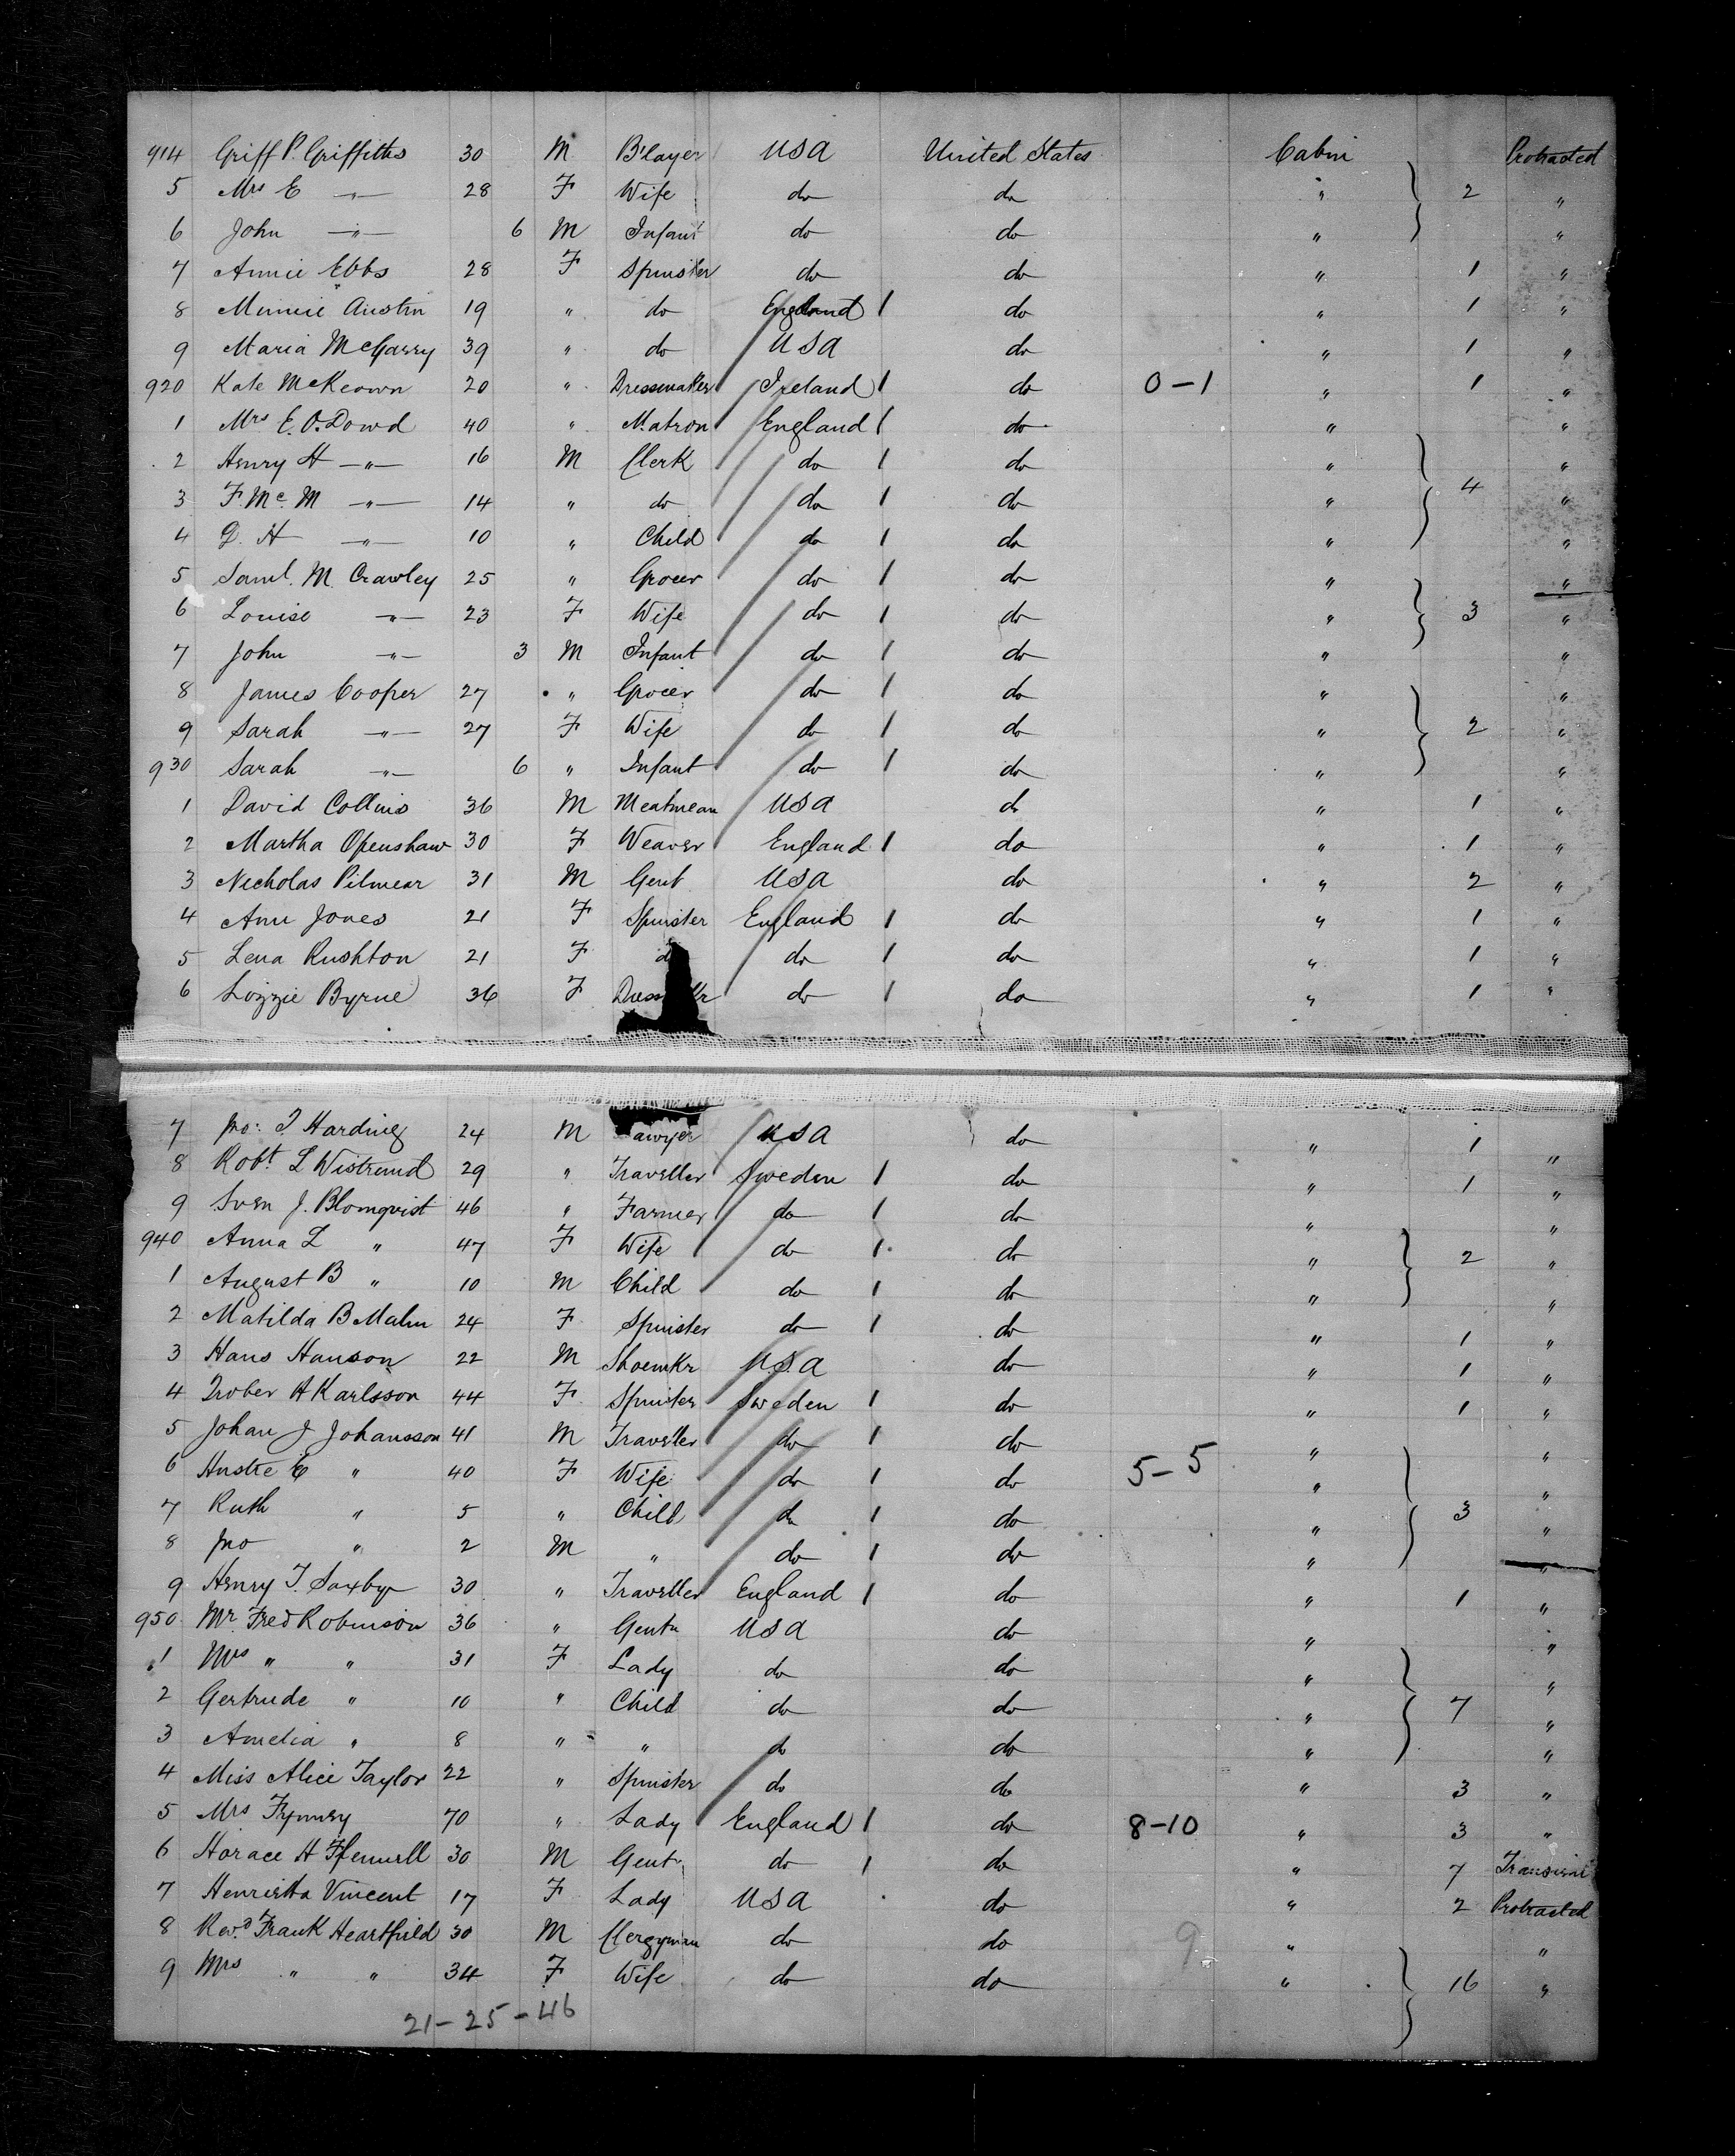 914 Griff P. Griffiths 30 M B'layer USA United States Cabin Protracted
5 Mrs E —〃— 28 F Wife do do 〃 2 〃
6 John —〃— 6 M Infant do do 〃 〃
7 Annie Ebbs 28 F Spinster do do 〃 1 〃
8 Minnie Austin 19 〃 do England 1 do 〃 1 〃
9 Maria McGarry 39 〃 do USA do 〃 1 〃
920 Kate McKeown 20 〃 Dressmaker Ireland 1 do 0-1 〃 1 〃
1 Mrs E. O. Dowd 40 〃 Matron England 1 do 〃 〃
2 Henry H —〃— 16 M Clerk do 1 do 〃 〃
3 F. Mc. M —〃— 14 〃 do do 1 do 〃 4 〃
4 D. H —〃— 10 〃 Child do 1 do 〃 〃
5 Saml. M. Crawley 25 〃 Grocer do 1 do 〃 〃
6 Louise —〃— 23 F Wife do 1 do 〃 3 〃
7 John —〃— 3 M Infant do 1 do 〃 〃
8 James Cooper 27 〃 Grocer do 1 do 〃 〃
9 Sarah —〃— 27 F Wife do 1 do 〃 2 〃
930 Sarah —〃— 6 〃 Infant do 1 do 〃 〃
1 David Collins 36 M Meatman USA do 〃 1 〃
2 Martha Openshaw 30 F Weaver England 1 do 〃 1 〃
3 Nicholas Pilmear 31 M Gent USA do 〃 2 〃
4 Ann Jones 21 F Spinster England 1 do 〃 1 〃
5 Lena Rushton 21 F do 1 do 〃 1 〃
6 Lizzie Byrne 36 F Dress kr do 1 do 〃 1 〃
7 Jno. T Harding 24 M awyer USA do 〃 1 〃
8 Robt L Wistrand 29 〃 Traveller Sweden 1 do 〃 1 〃
9 Sven J. Blomqvist 46 〃 Farmer do 1 do 〃 〃
940 Anna L 〃 47 F Wife do 1 do 〃 2 〃
1 August B 〃 10 M Child do 1 do 〃 〃
2 Matilda B Malm 24 F Spinster do 1 do 〃 1 〃
3 Hans Hanson 22 M Shoemkr U.S.A do 〃 1 〃
4 H Karlsson 44 F Spinster Sweden 1 do 〃 1 〃
5 Johan J Johansson 41 M Traveller do 1 do 〃 〃
6 E 〃 40 F Wife do 1 do 5-5 〃 〃
7 Ruth 〃 5 〃 Child do 1 do 〃 3 〃
8 Jno 〃 2 M 〃 do 1 do 〃 〃
9 Henry T. Saxby 30 〃 Traveller England 1 do 〃 1 〃
950 Mr Fred Robinson 36 〃 Gentn USA do 〃 〃
1 Mrs 〃 〃 31 F Lady do do 〃 〃
2 Gertrude 〃 10 〃 Child do do 〃 7 〃
3 Amelia 〃 8 〃 〃 do do 〃 〃
4 Miss Alice Taylor 22 〃 Spinster do do 〃 3 〃
5 Mrs 70 〃 Lady England 1 do 8-10 〃 3 〃
6 Horace H 30 M Gent. do 1 do 〃 7 Transient
7 Henrietta Vincent 17 F Lady USA do 〃 2 Protracted
8 Revd Frank Heartfield 30 M Clergyman do do 9 〃 〃
9 Mrs 〃 〃 34 F Wife do do 〃 16 〃
21-25-46